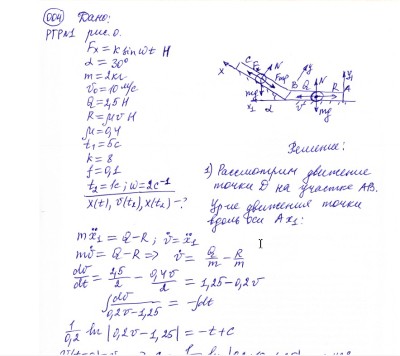 004 Дано:
РГР№1 рис.0.
Fx = k sin ωt H
α = 30°
m = 2кг
V₀ = 10 м/с
Q = 2,5 H
R = μv H
μ = 0,4
t₁ = 5c
k = 8
f = 0,1
t₂ = 1c; ω = 2c⁻¹
x(t), v(t₂), x(t₂) - ?
C F N Fтр y
x mg B Q N R A
x₁ α V mg
Решение:
1) Рассмотрим движение
точки D на участке AB.
Ур-ие движения точки
вдоль оси Ax₁:
mẍ₁ = Q - R ; v̇ = ẍ₁
mv̇ = Q - R => v̇ = Q/m - R/m
dv/dt = 2,5/2 - 0,4v/2 = 1,25 - 0,2v
∫ dv/(0,2v - 1,25) = -∫dt
1/0,2 ln |0,2v - 1,25| = -t + C